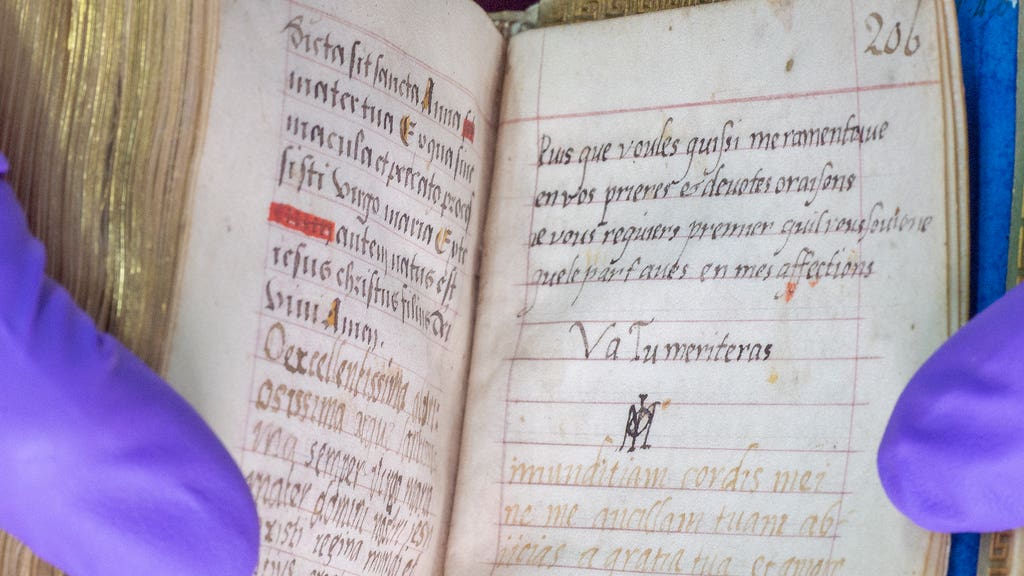 dicta sit sancta Anna
mater tua Ex qua sine
macula et peccato proces
sisti virgo maria Ex te
autem natus est
iesus christus filius dei
vivi Amen.
O excellentissima
semper virgo maria
mater domini nostri iesu
xpisti regina
206
Puis que voules quissi me ramentoive
en vos prieres & devotes oraisons
je vous requiers premier quil vous souvione
quele part aues en mes affections
Va Tu meriteras
imunditiam cordis mei
ne me ancillam tuam ab-
iicias a gratia tua et